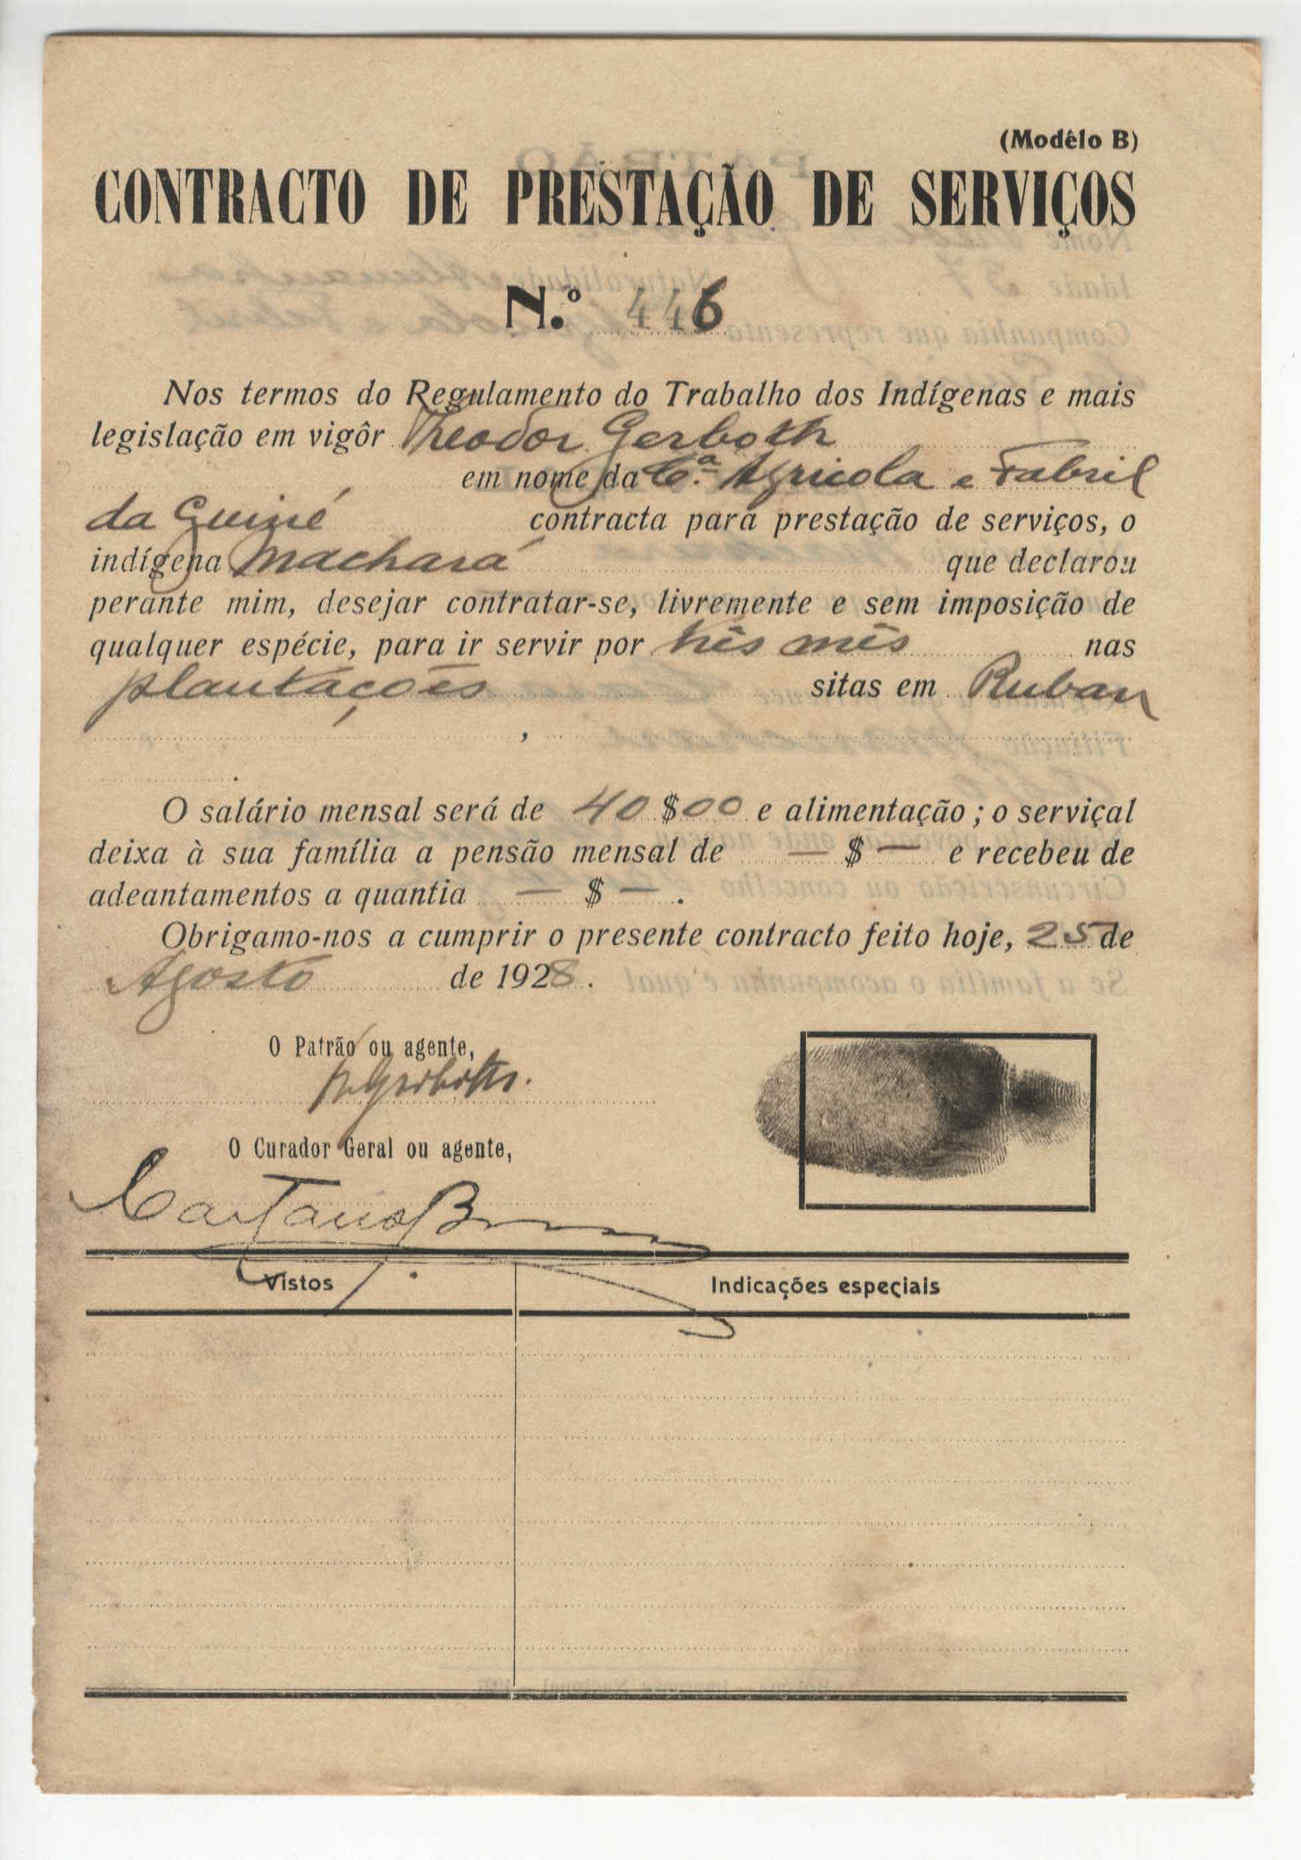 (Modêlo B)
CONTRACTO DE PRESTAÇÃO DE SERVIÇOS
N.º 446
Nos termos do Regulamento do Trabalho dos Indígenas e mais
legislação em vigôr Theodor Gerboth
em nome da Cª Agricola e Fabril
da Guiné contracta para prestação de serviços, o
indígena Machará que declarou
perante mim, desejar contratar-se, livremente e sem imposição de
qualquer espécie, para ir servir por três mês nas
plantações sitas em Ruban
O salário mensal será de 40$00 e alimentação; o serviçal
deixa à sua família a pensão mensal de — $ — e recebeu de
adeantamentos a quantia — $ — .
Obrigamo-nos a cumprir o presente contracto feito hoje, 25 de
Agosto de 1928.
O Patrão ou agente,
Gerboth.
O Curador Geral ou agente,
Caetano
Vistos
Indicações especiais